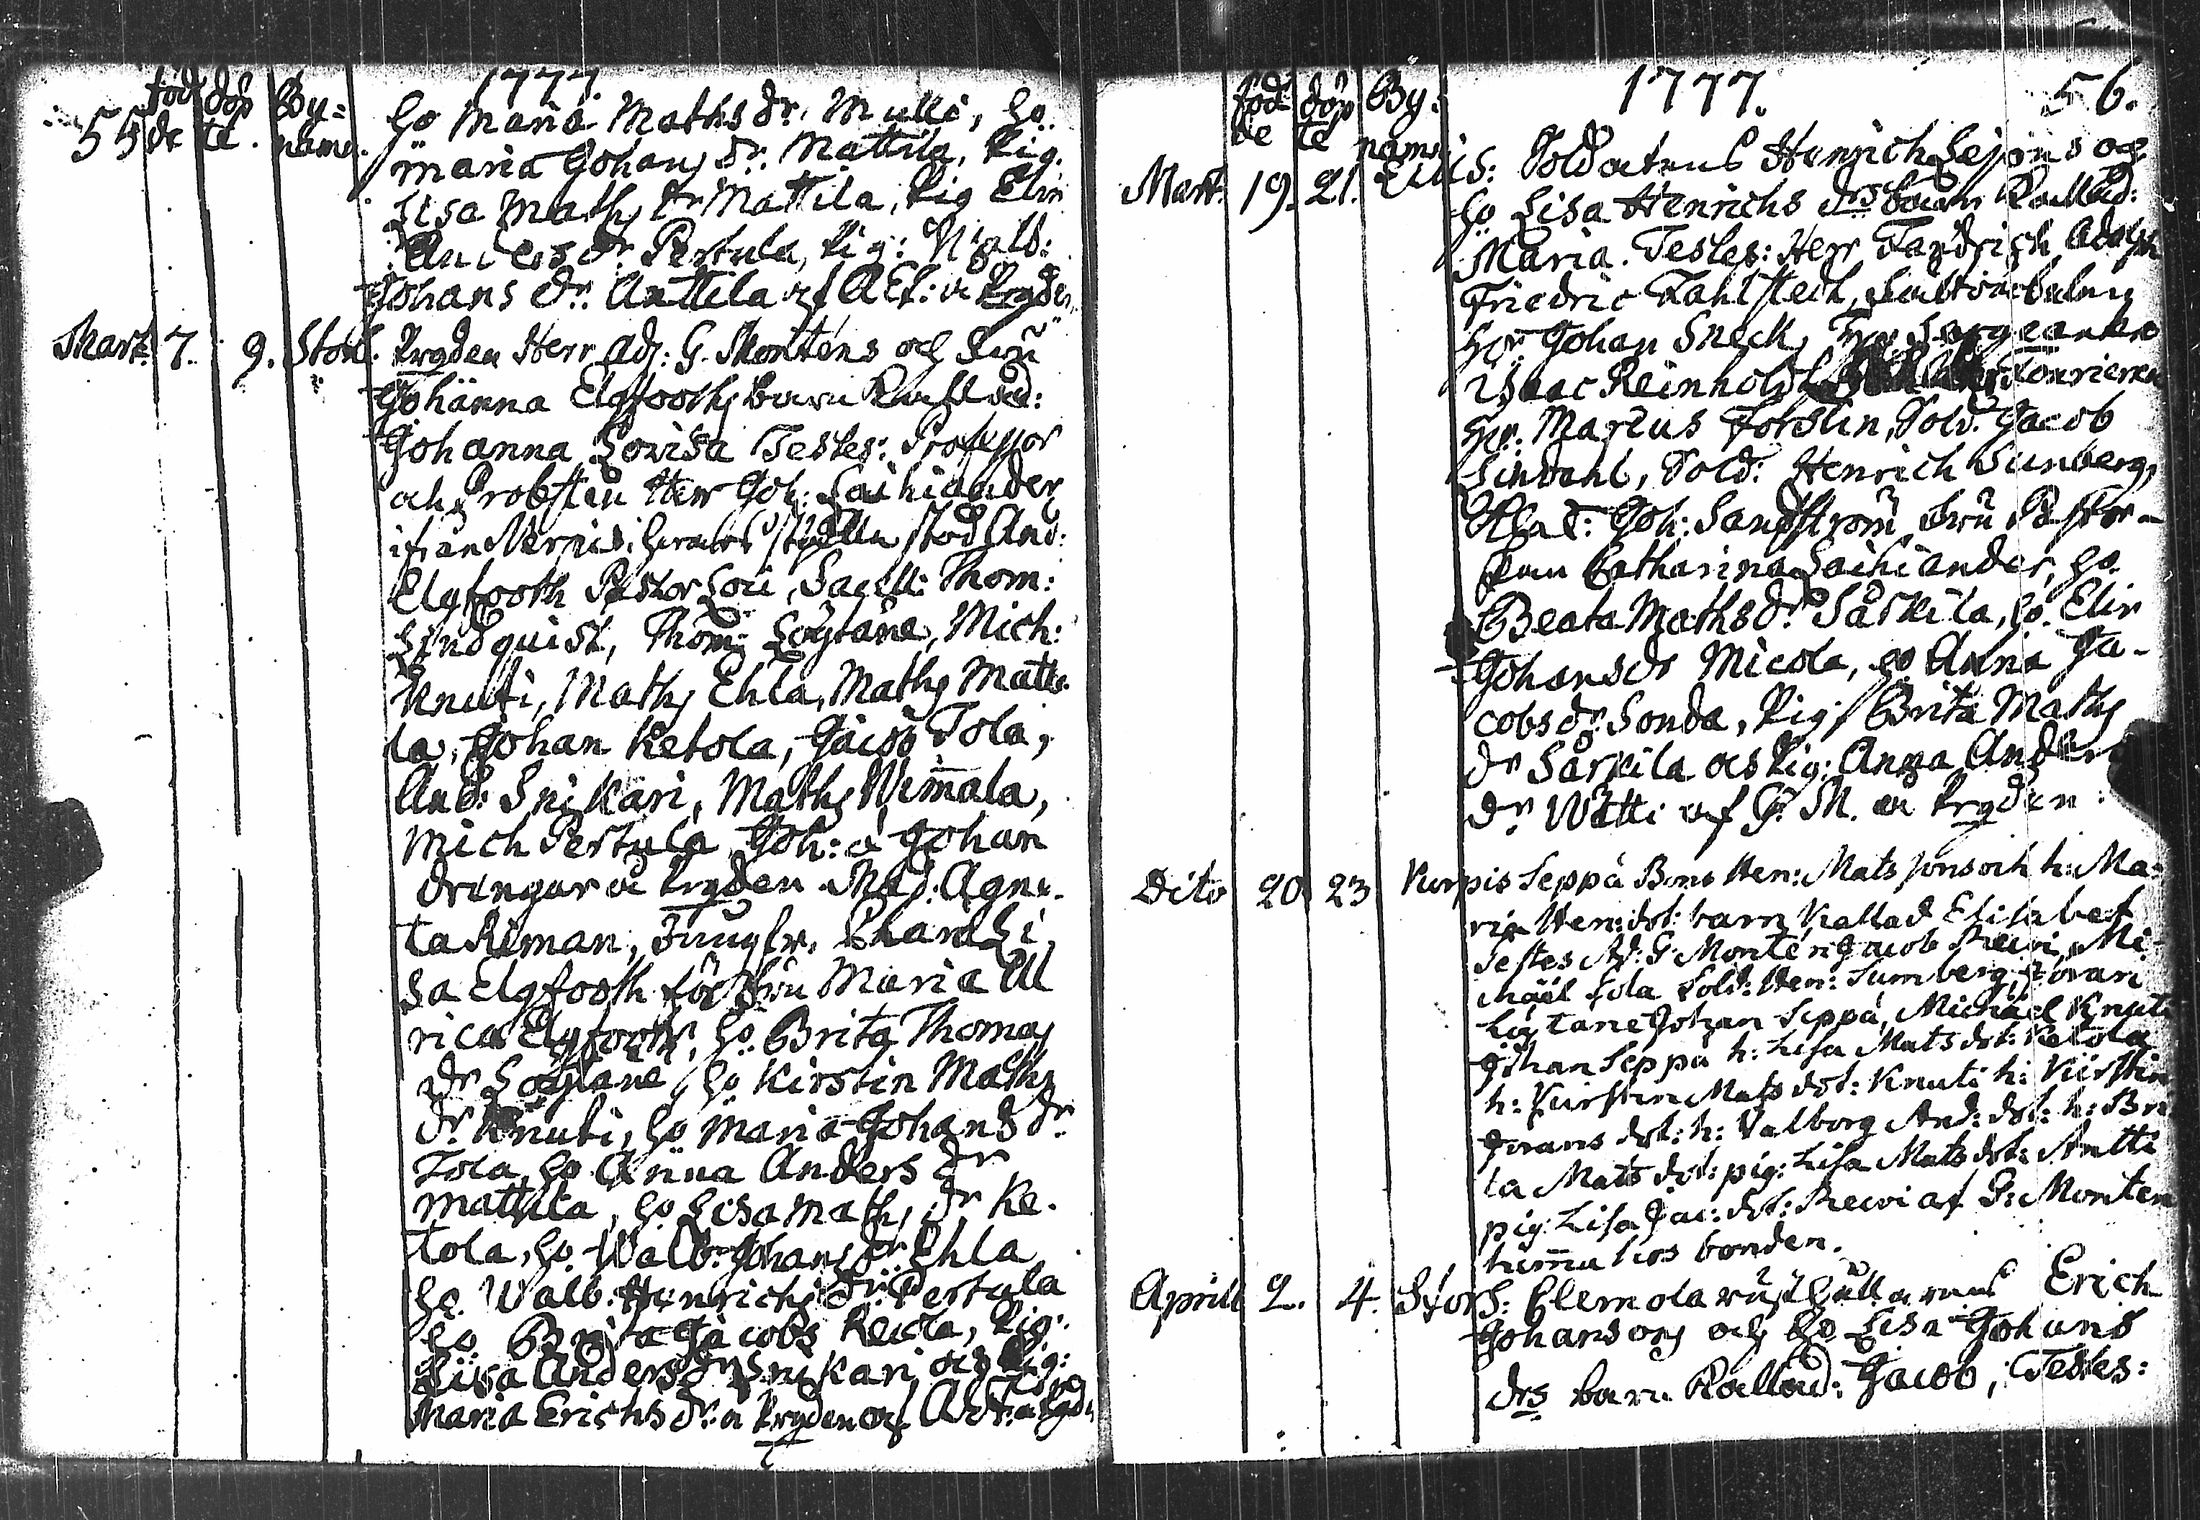 1777.
55 föd döp By=
de te. namn.
ho Maria Mathsdr. Mulli, ho.
Maria Johans dr. Mattila, Pig.
Lisa Maths dr Mattila, Pig Elin
Anders dr. Pertula, Pig: Walb:
Johans dr. Anttila af A E L: a Prgdn
Mart: 7. 9. Stork. Prgden Herr Adj: G. Monténs och Fru
Johanna Elgfooths barn Kallad:
Johanna Lovisa Testes: Professor
och Probsten Herr Joh: Laihiander
ifrån Nerpis, i hwars ställe stod And:
Elgfooth Pastor Loci, Sacell: Thom:
Lindquist, Thom: Löytäne, Mich:
Knuti, Maths Ehla, Maths Matti
la, Johan Ketola, Jacob Tola,
And: Snikari, Maths Wimala,
Mich Pertula Joh: a Johan
drengar a Prgden Mad: Agne-
ta Riman, Jungfr. Charl: Li
sa Elgfooth för Fru Maria Ul
rica Elgfooth, ho. Brita Thomas
dr Löytane, ho Kirstin Maths
dr. Knuti, ho Maria Johans dr.
Tola, ho Anna Anders dr
Mattila, ho Lisa Maths dr Ke.
tola, ho. Walb: Johans dr. Ehla
ho. Walb: Henrichs dr. Pertula
ho Brita Jacobs Keola, Pig:
Lisa Anders dr Snikari och Pig:
Maria Erichs dr: a Prgden af
1777. 56.
föd döp By=
de te namn.
Mart. 19. 21. Soldatens Henrich Lejons och
ho Lisa Henrichs drs barn Kallad:
Maria. Testes: Herr Fändrich Adolph
Friedric Kahlstedt,
Hr Johan Sneck, Hr Sergeanten
Isaac Reinhold
Hr. Marcus Forslin, Sold. Jacob
Lindahl, Sold: Henrich Sunberg,
Joh: Sandström, Fru Pastor-
skan Catharina Laihiander, ho.
Beata Mathsdr. Särkila, ho. Elin
Johansdr Micola, ho Anna Ja-
cobsdr. Sonda, Pig: Brita Maths
dr Särkila och Pig: Anna Anders
dr Witti af G. M. a Prgden.
Dito 20 23 Kurpis Seppä Bons Hen: Matssons och h: Ma-
ria Hen: dot: barn kallad Elisabet
Testes Ad: G. Montén Jacob Kewi, Mi-
chäel Tola Sold: Hen: Sumberg, Jöran
Löytäne Johan Seppä, Michäel Knuti
Johan Seppä h: Lisa Mats dot: Ketola
h: Kirstin Mats dot: Knuti h: Kirstin
Jörans dot: h: Valborg And: dot: h: Bri
ta Mats dot: pig: Lisa Mats dot: Antti
pig: Lisa Jac: dot: Kewi af G: Monten
hemma hos bonden.
April 2. 4. Stork: Clemola rusthållarens Erich
Johansons och ho Lisa Johans
drs barn Kallad: Jacob, Testes: